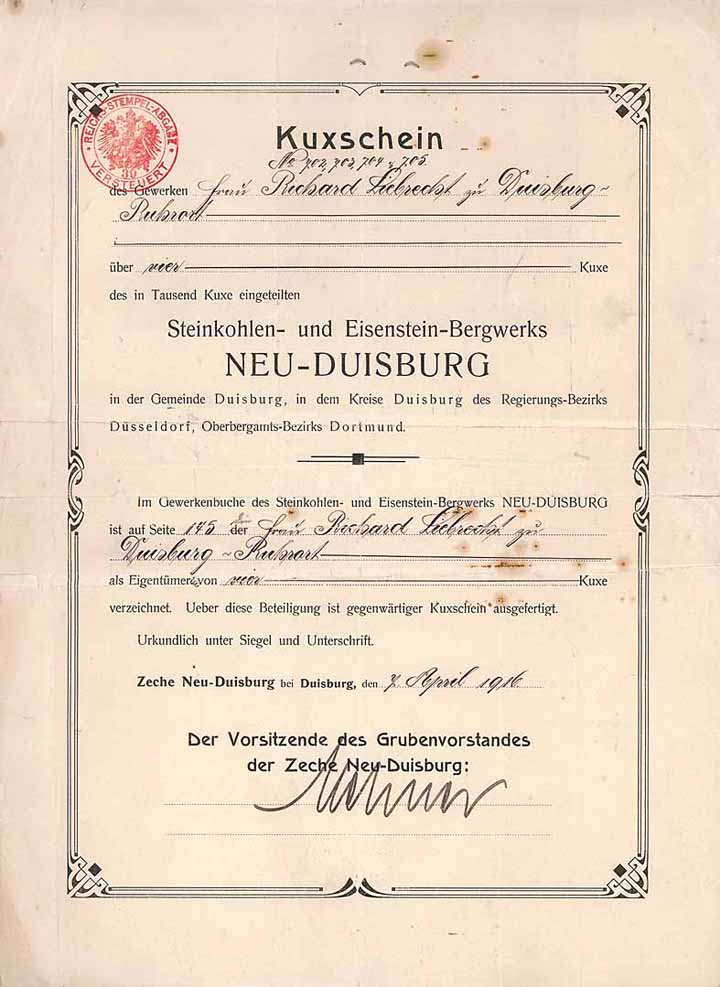 REICHS-STEMPEL-ABGABE
30
VERSTEUERT
Kuxschein
No 702, 703, 704 & 705
des Gewerken Frau Richard Liebrecht zu Duisburg-
Ruhrort
über vier Kuxe
des in Tausend Kuxe eingeteilten
Steinkohlen- und Eisenstein-Bergwerks
NEU-DUISBURG
in der Gemeinde Duisburg, in dem Kreise Duisburg des Regierungs-Bezirks
Düsseldorf, Oberbergamts-Bezirks Dortmund.
Im Gewerkenbuche des Steinkohlen- und Eisenstein-Bergwerks NEU-DUISBURG
ist auf Seite 145 der Frau Richard Liebrecht zu
Duisburg-Ruhrort
als Eigentümer von vier Kuxe
verzeichnet. Ueber diese Beteiligung ist gegenwärtiger Kuxschein ausgefertigt.
Urkundlich unter Siegel und Unterschrift.
Zeche Neu-Duisburg bei Duisburg, den 7. April 1916
Der Vorsitzende des Grubenvorstandes
der Zeche Neu-Duisburg: